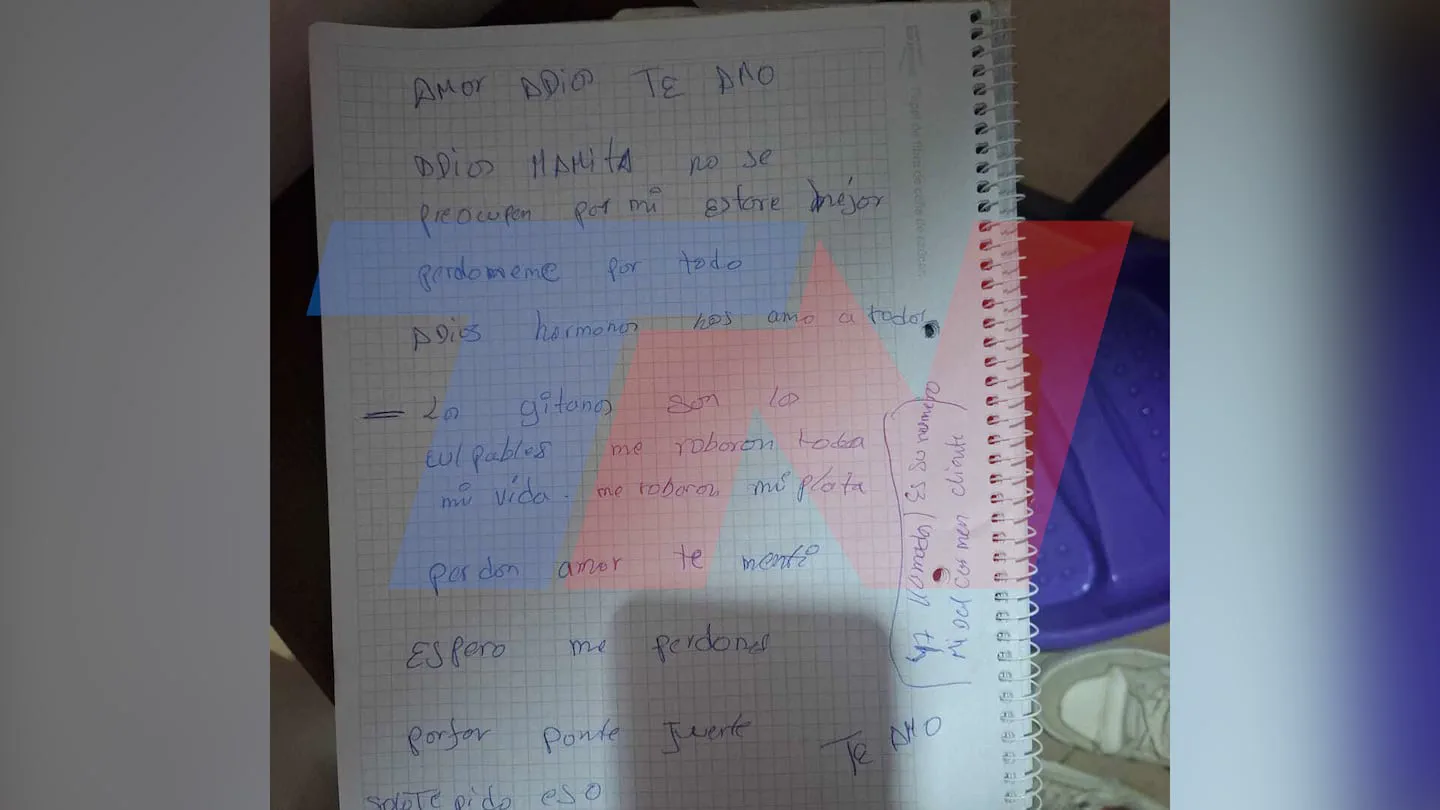 AMOr ADios TE AMO
ADios MAMitA no se
preocupen por mi estare mejor
perdomeme por todo
ADios hermanos los amo a todos
— Los gitanos son los
culpables me robaron toda
mi vida. me robaron mi plata
perdon amor te menti
Espero me perdones
porfor ponte fuerte TE AMO
solo TE pido eso
llamada / Es su numero
cliente
TN